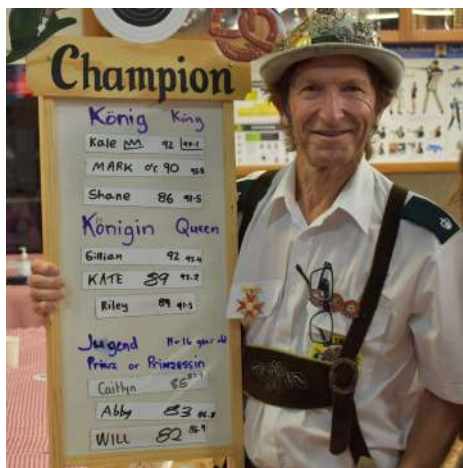 Champion
König King
Kale M 92
MARK o'c 90
Shane 86 91.5
Königin Queen
Gillian 92 93.4
KATE 89 93.2
Riley 89 91.3
Jugend 11-16 year old
Prinz or Prinzessin
Caitlyn 85
Abby 83 86.8
WILL 82 86.9